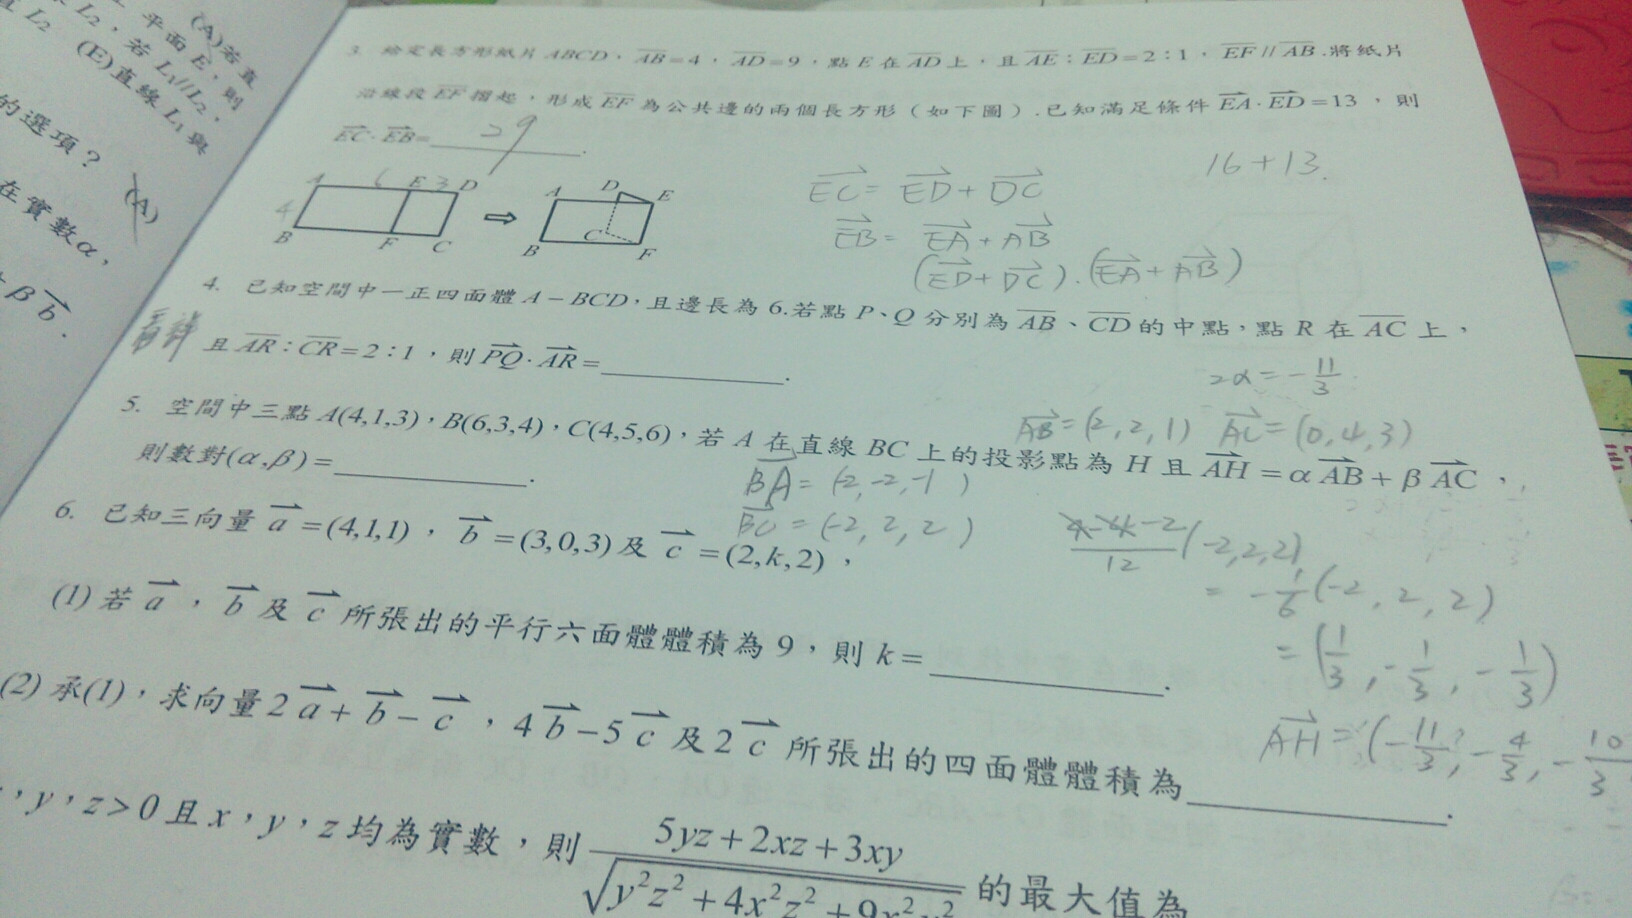 (A)若直
平面E,則
L₂,若L₁//L₂,
L₂ (E)直線L₁與
的選項?
(A)
在實數α,
β b⃗.
3. 給定長方形紙片ABCD,A̅B̅=4,A̅D̅=9,點E在A̅D̅上,且A̅E̅:E̅D̅=2:1,E̅F̅//A̅B̅.將紙片
沿線段E̅F̅摺起,形成E̅F̅為公共邊的兩個長方形(如下圖).已知滿足條件EA⃗·ED⃗=13,則
EC⃗·EB⃗= 29 .
16+13.
A 6 E 3 D
4
B F C
⇨
A D E
B C F
EC⃗= ED⃗+DC⃗
EB⃗= EA⃗+AB⃗
(ED⃗+DC⃗).(EA⃗+AB⃗)
4. 已知空間中一正四面體A-BCD,且邊長為6.若點P、Q分別為A̅B̅、C̅D̅的中點,點R在A̅C̅上,
且A̅R̅:C̅R̅=2:1,則PQ⃗·AR⃗= .
2α=-11/3
5. 空間中三點A(4,1,3),B(6,3,4),C(4,5,6),若A在直線BC上的投影點為H且AH⃗=αAB⃗+βAC⃗,
則數對(α,β)= .
AB⃗=(2,2,1) AC⃗=(0,4,3)
BA⃗=(-2,-2,-1)
BC⃗=(-2,2,2)
4-4-2/12(-2,2,2)
=-1/6(-2,2,2)
=(1/3,-1/3,-1/3)
AH⃗=(-11/3,-4/3,-10/3
6. 已知三向量a⃗=(4,1,1),b⃗=(3,0,3)及c⃗=(2,k,2),
(1)若a⃗,b⃗及c⃗所張出的平行六面體體積為9,則k= .
(2)承(1),求向量2a⃗+b⃗-c⃗,4b⃗-5c⃗及2c⃗所張出的四面體體積為 .
,y,z>0且x,y,z均為實數,則 5yz+2xz+3xy / √y²z²+4x²z²+9x²y² 的最大值為